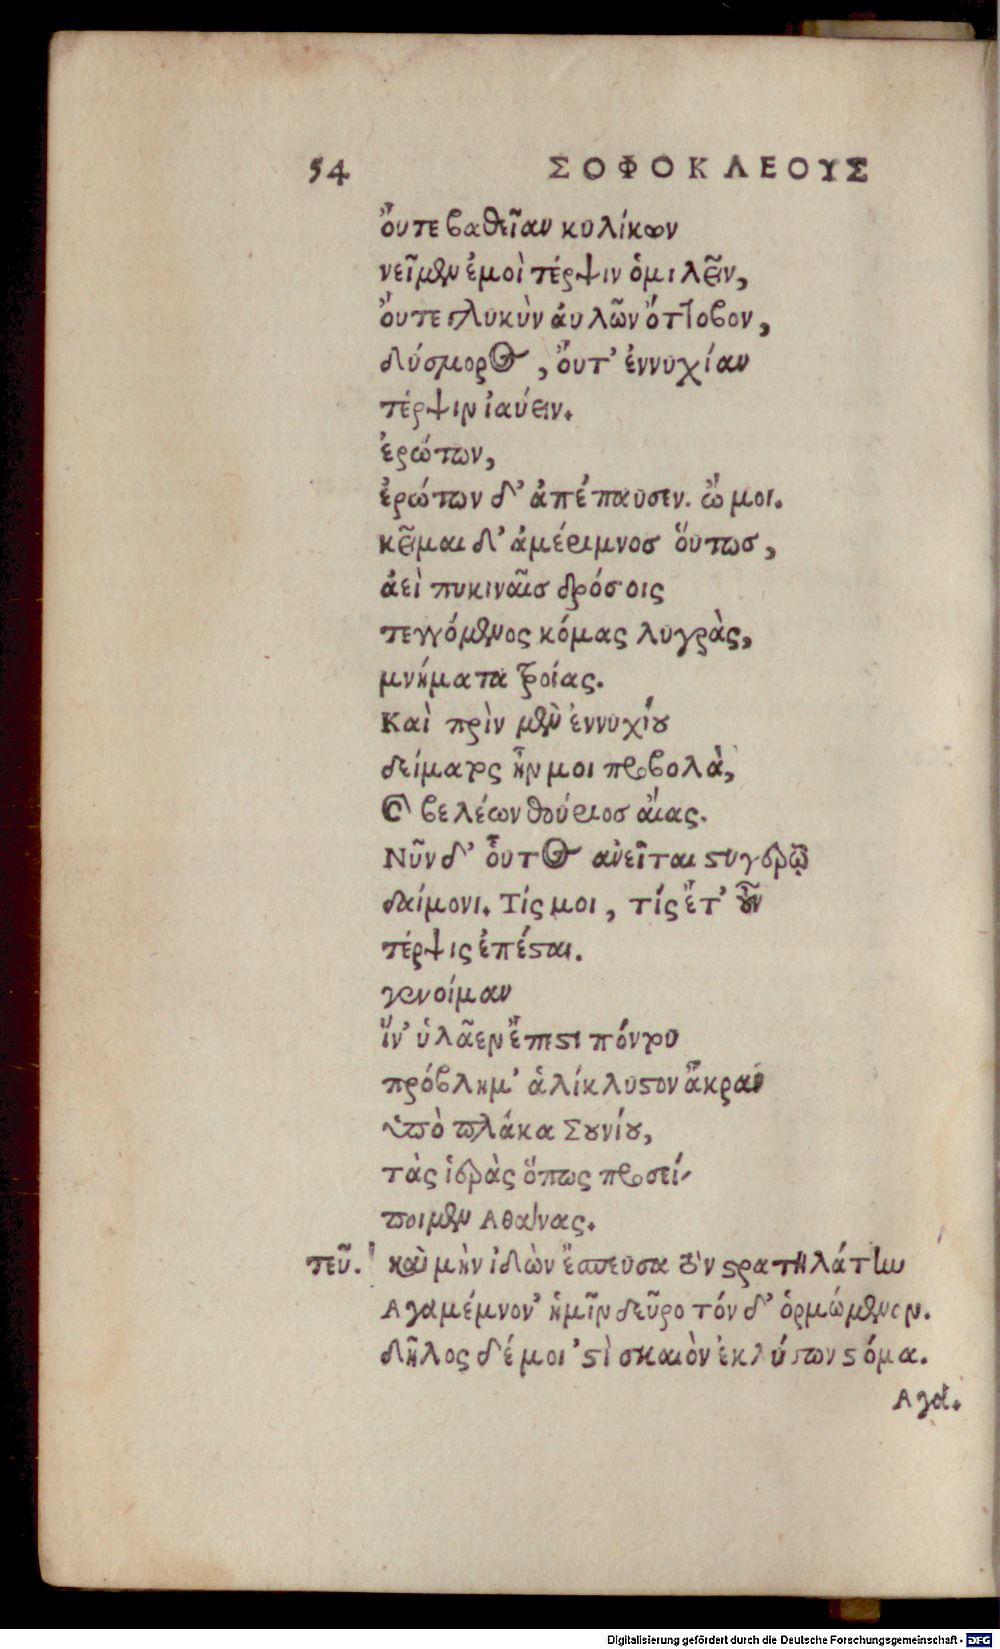 54 ΣΟΦΟΚΛΕΟΥΣ
ὄυτε βαθεῖαν κυλίκων
νεῖμεν ἐμοὶ τέρψιν ὁμιλεῖν,
ὄυτε γλυκὺν ἀυλῶν ὄττοβον,
δύσμορος, ὄυτ' ἐννυχίαν
τέρψιν ἰαύειν.
ἐρώτων,
ἐρώτων δ' ἀπέπαυσεν. ὤ μοι.
κεῖμαι δ' ἀμέριμνοσ ὅυτωσ,
ἀεὶ πυκιναῖσ δρόσοις
τεγγόμενος κόμας λυγρὰς,
μνήματα τροίας.
Καὶ πρὶν μὲν ἐννυχίου
δείματος ἦν μοι προβολὰ,
καὶ βελέων θούριοσ αἴας.
Νῦν δ' οὗτος ἀνεῖται στυγερῷ
δαίμονι. Τίς μοι, τίς ἔτ' οὖν
τέρψις ἐπέσται.
γενοίμαν
ἵν' ὑλᾶεν ἔπεστι πόντου
πρόβλημ' ἁλίκλυστον ἄκραν
ὑπὸ πλάκα Σουνίου,
τὰς ἱερὰς ὅπως προσεί-
ποιμεν Αθαίνας.
τεῦ. καὶ μὴν ἰδὼν ἔσπευσα τὸν στρατηλάτην
Αγαμέμνον' ἡμῖν δεῦρο τόν δ' ὁρμώμενον.
δῆλος δέ μοι 'στὶ σκαιὸν ἐκλύσων στόμα.
Αγα.
Digitalisierung gefördert durch die Deutsche Forschungsgemeinschaft - DFG